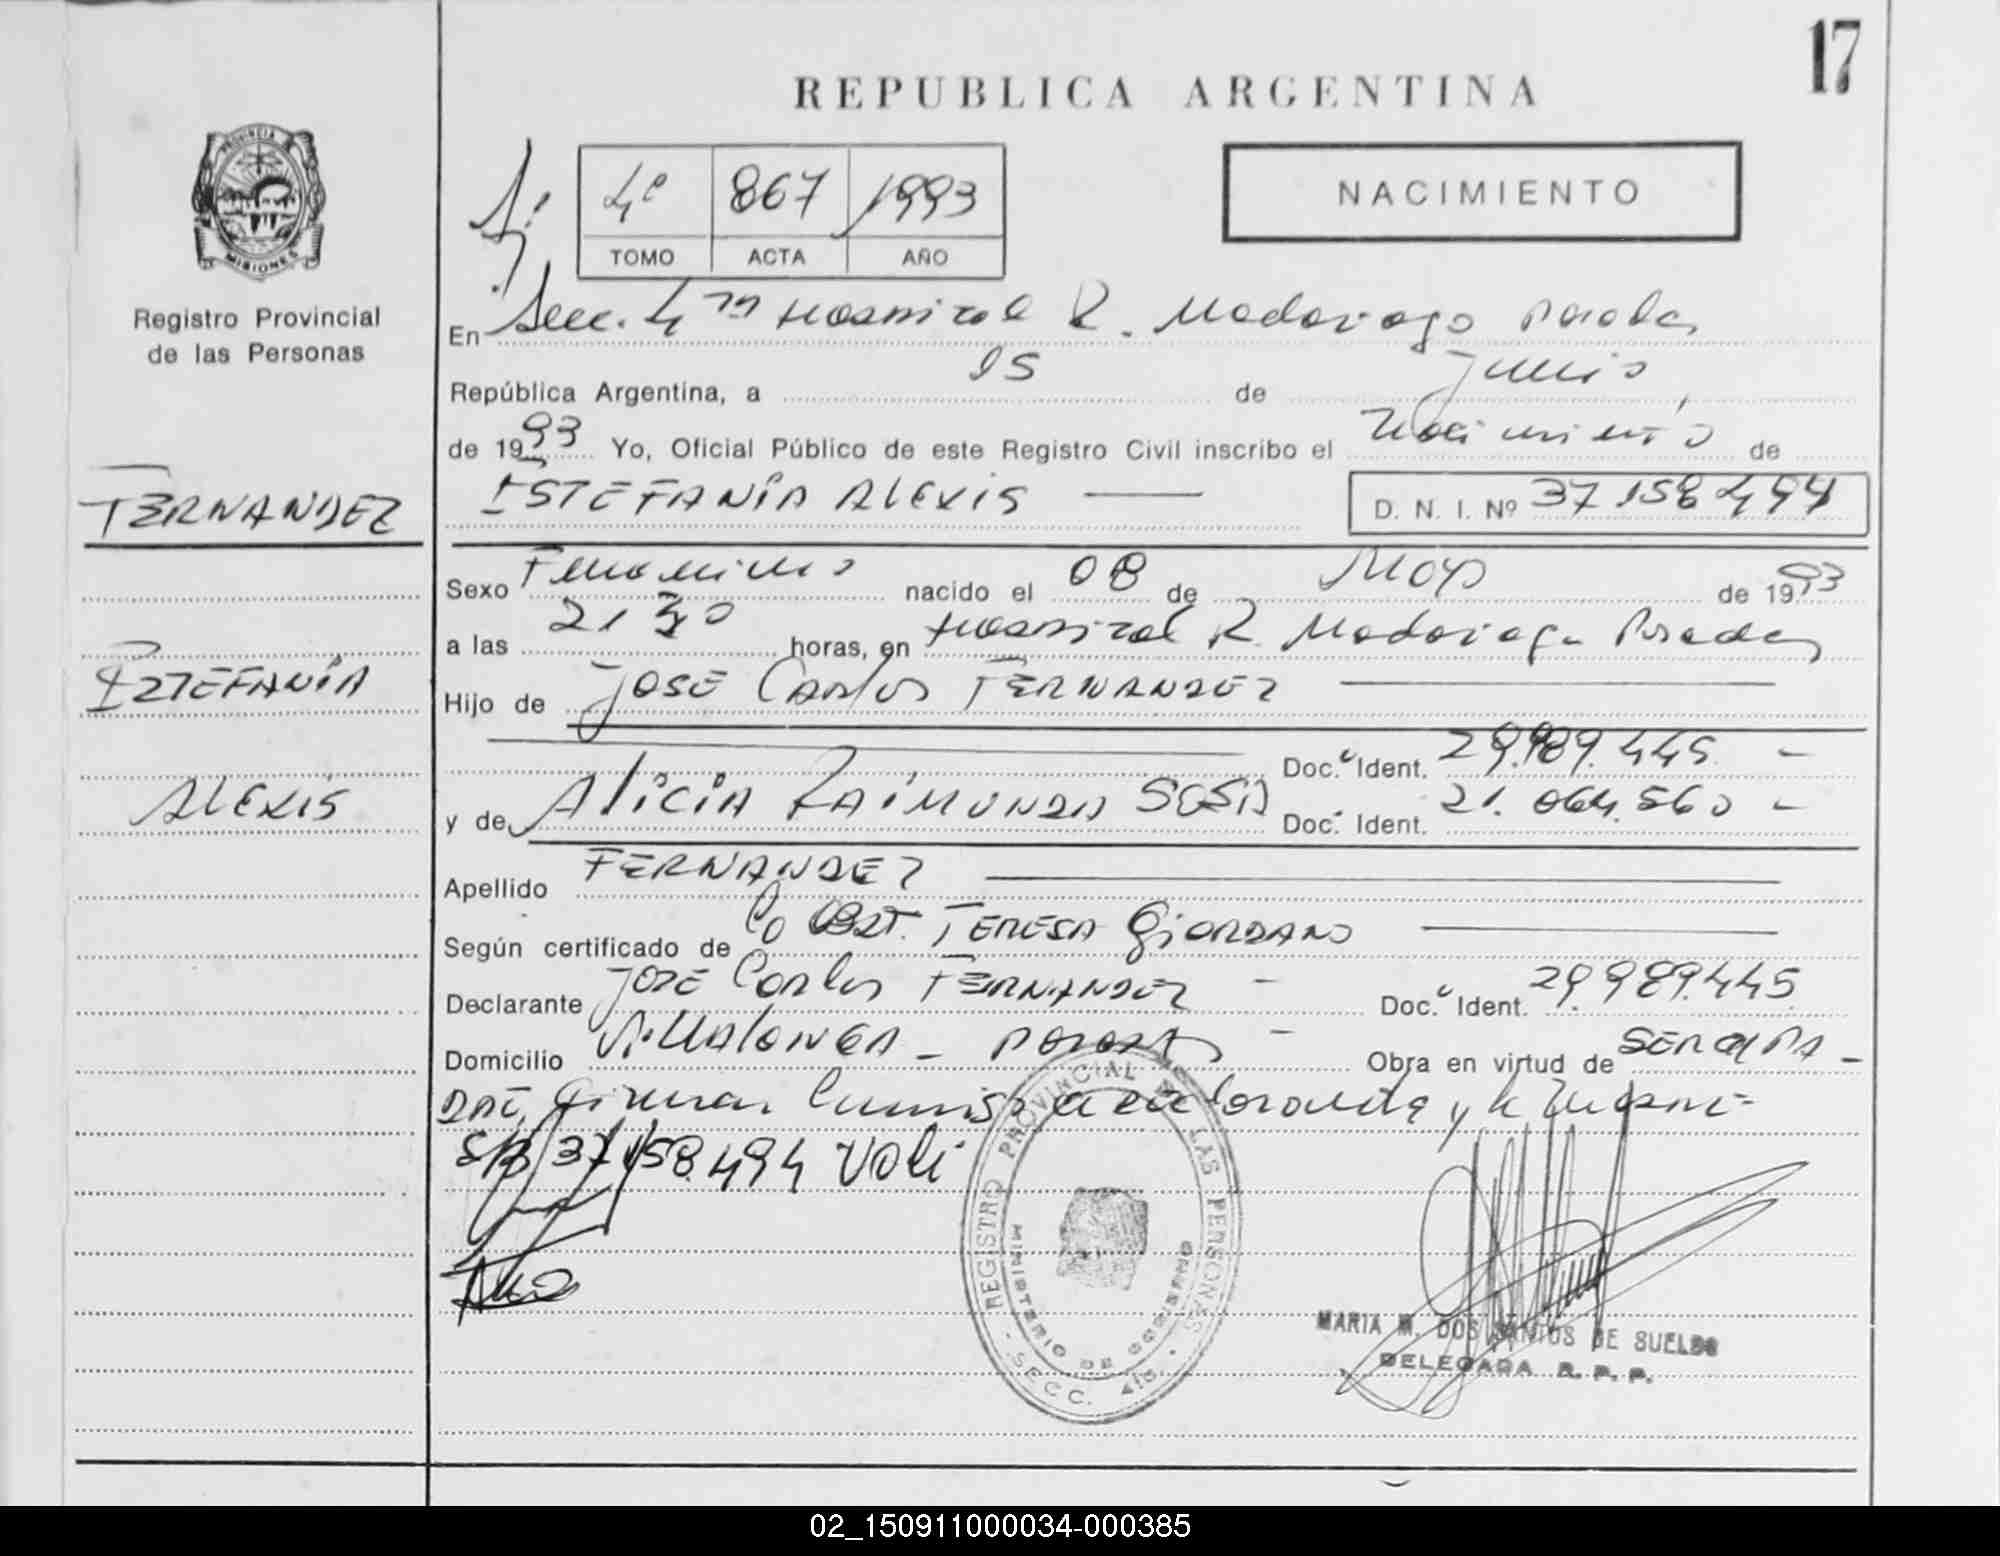 17
REPUBLICA ARGENTINA
PROVINCIA
MISIONES
Registro Provincial
de las Personas
4º 867 1993
TOMO ACTA AÑO
NACIMIENTO
En Secc. 4ta Hospital R. Madariaga Posadas
República Argentina, a 15 de Junio
de 1993 Yo, Oficial Público de este Registro Civil inscribo el Nacimiento de
ESTEFANÍA ALEXIS
D. N. I. Nº 37.158.494
FERNANDEZ
ESTEFANÍA
ALEXIS
Sexo Femenino nacido el 08 de Mayo de 1993
a las 21 30 horas, en Hospital R. Madariaga Posadas
Hijo de JOSE Carlos FERNANDEZ
Doc. Ident. 29.989.445
y de ALICIA RAIMUNDA SOSA Doc. Ident. 21.064.560
Apellido FERNANDEZ
Según certificado de La OBST. TERESA GIORDANO
Declarante JOSE Carlos FERNANDEZ Doc. Ident. 29.989.445
Domicilio VILLALONGA - POSADAS - Obra en virtud de SER el PA-
DRE, Firman Conmigo el declarante y la Madre
S/B 37.158.494 Vale
REGISTRO PROVINCIAL DE LAS PERSONAS
MINISTERIO DE GOBIERNO
SECC. 4ta
MARIA M. DOS SANTOS DE SUELDO
DELEGADA R. P. P.
02_150911000034-000385